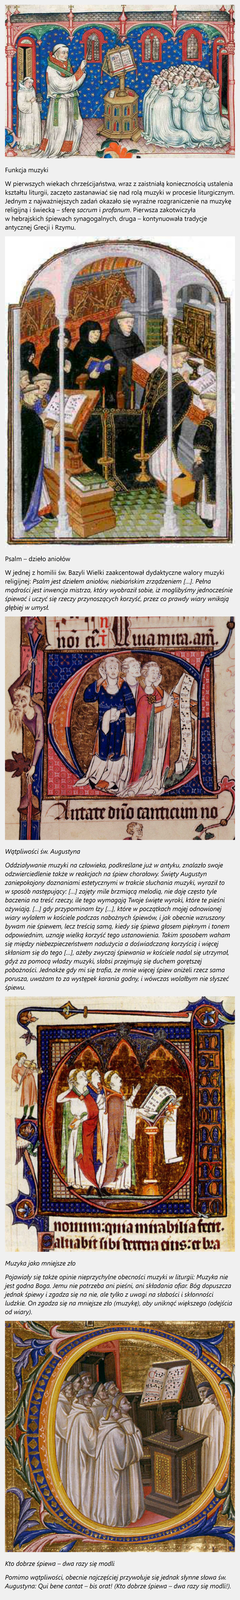 Funkcja muzyki
W pierwszych wiekach chrześcijaństwa, wraz z zaistniałą koniecznością ustalenia
kształtu liturgii, zaczęto zastanawiać się nad rolą muzyki w procesie liturgicznym.
Jednym z najważniejszych zadań okazało się wyraźne rozgraniczenie na muzykę
religijną i świecką – sferę sacrum i profanum. Pierwsza zakotwiczyła
w hebrajskich śpiewach synagogalnych, druga – kontynuowała tradycje
antycznej Grecji i Rzymu.
Psalm – dzieło aniołów
W jednej z homilii św. Bazyli Wielki zaakcentował dydaktyczne walory muzyki
religijnej: Psalm jest dziełem aniołów, niebiańskim zrządzeniem [...]. Pełna
mądrości jest inwencja mistrza, który wyobraził sobie, iż moglibyśmy jednocześnie
śpiewać i uczyć się rzeczy przynoszących korzyść, przez co prawdy wiary wnikają
głębiej w umysł.
Wątpliwości św. Augustyna
Oddziaływanie muzyki na człowieka, podkreślane już w antyku, znalazło swoje
odzwierciedlenie także w reakcjach na śpiew chorałowy. Święty Augustyn
zaniepokojony doznaniami estetycznymi w trakcie słuchania muzyki, wyraził to
w sposób następujący: [...] zajęty mile brzmiącą melodią, nie daję często tyle
baczenia na treść rzeczy, ile tego wymagają Twoje święte wyroki, które te pieśni
ożywiają. [...] gdy przypominam łzy [...], które w początkach mojej odnowionej
wiary wylałem w kościele podczas nabożnych śpiewów, i jak obecnie wzruszony
bywam nie śpiewem, lecz treścią samą, kiedy się śpiewa głosem pięknym i tonem
odpowiednim, uznaję wielką korzyść tego ustanowienia. Takim sposobem waham
się między niebezpieczeństwem nadużycia a doświadczaną korzyścią i więcej
skłaniam się do tego [...], ażeby zwyczaj śpiewania w kościele nadal się utrzymał,
gdyż za pomocą władzy muzyki, słabsi przejmują się duchem gorętszej
pobożności. Jednakże gdy mi się trafia, że mnie więcej śpiew aniżeli rzecz sama
porusza, uważam to za występek karania godny, i wówczas wolałbym nie słyszeć
śpiewu.
Muzyka jako mniejsze zło
Pojawiały się także opinie nieprzychylne obecności muzyki w liturgii: Muzyka nie
jest godna Boga. Jemu nie potrzeba ani pieśni, ani składania ofiar. Bóg dopuszcza
jednak śpiewy i zgadza się na nie, ale tylko z uwagi na słabości i skłonności
ludzkie. On zgadza się na mniejsze zło (muzykę), aby uniknąć większego (odejścia
od wiary).
Kto dobrze śpiewa – dwa razy się modli
Pomimo wątpliwości, obecnie najczęściej przywołuje się jednak słynne słowa św.
Augustyna: Qui bene cantat – bis orat! (Kto dobrze śpiewa – dwa razy się modli!).